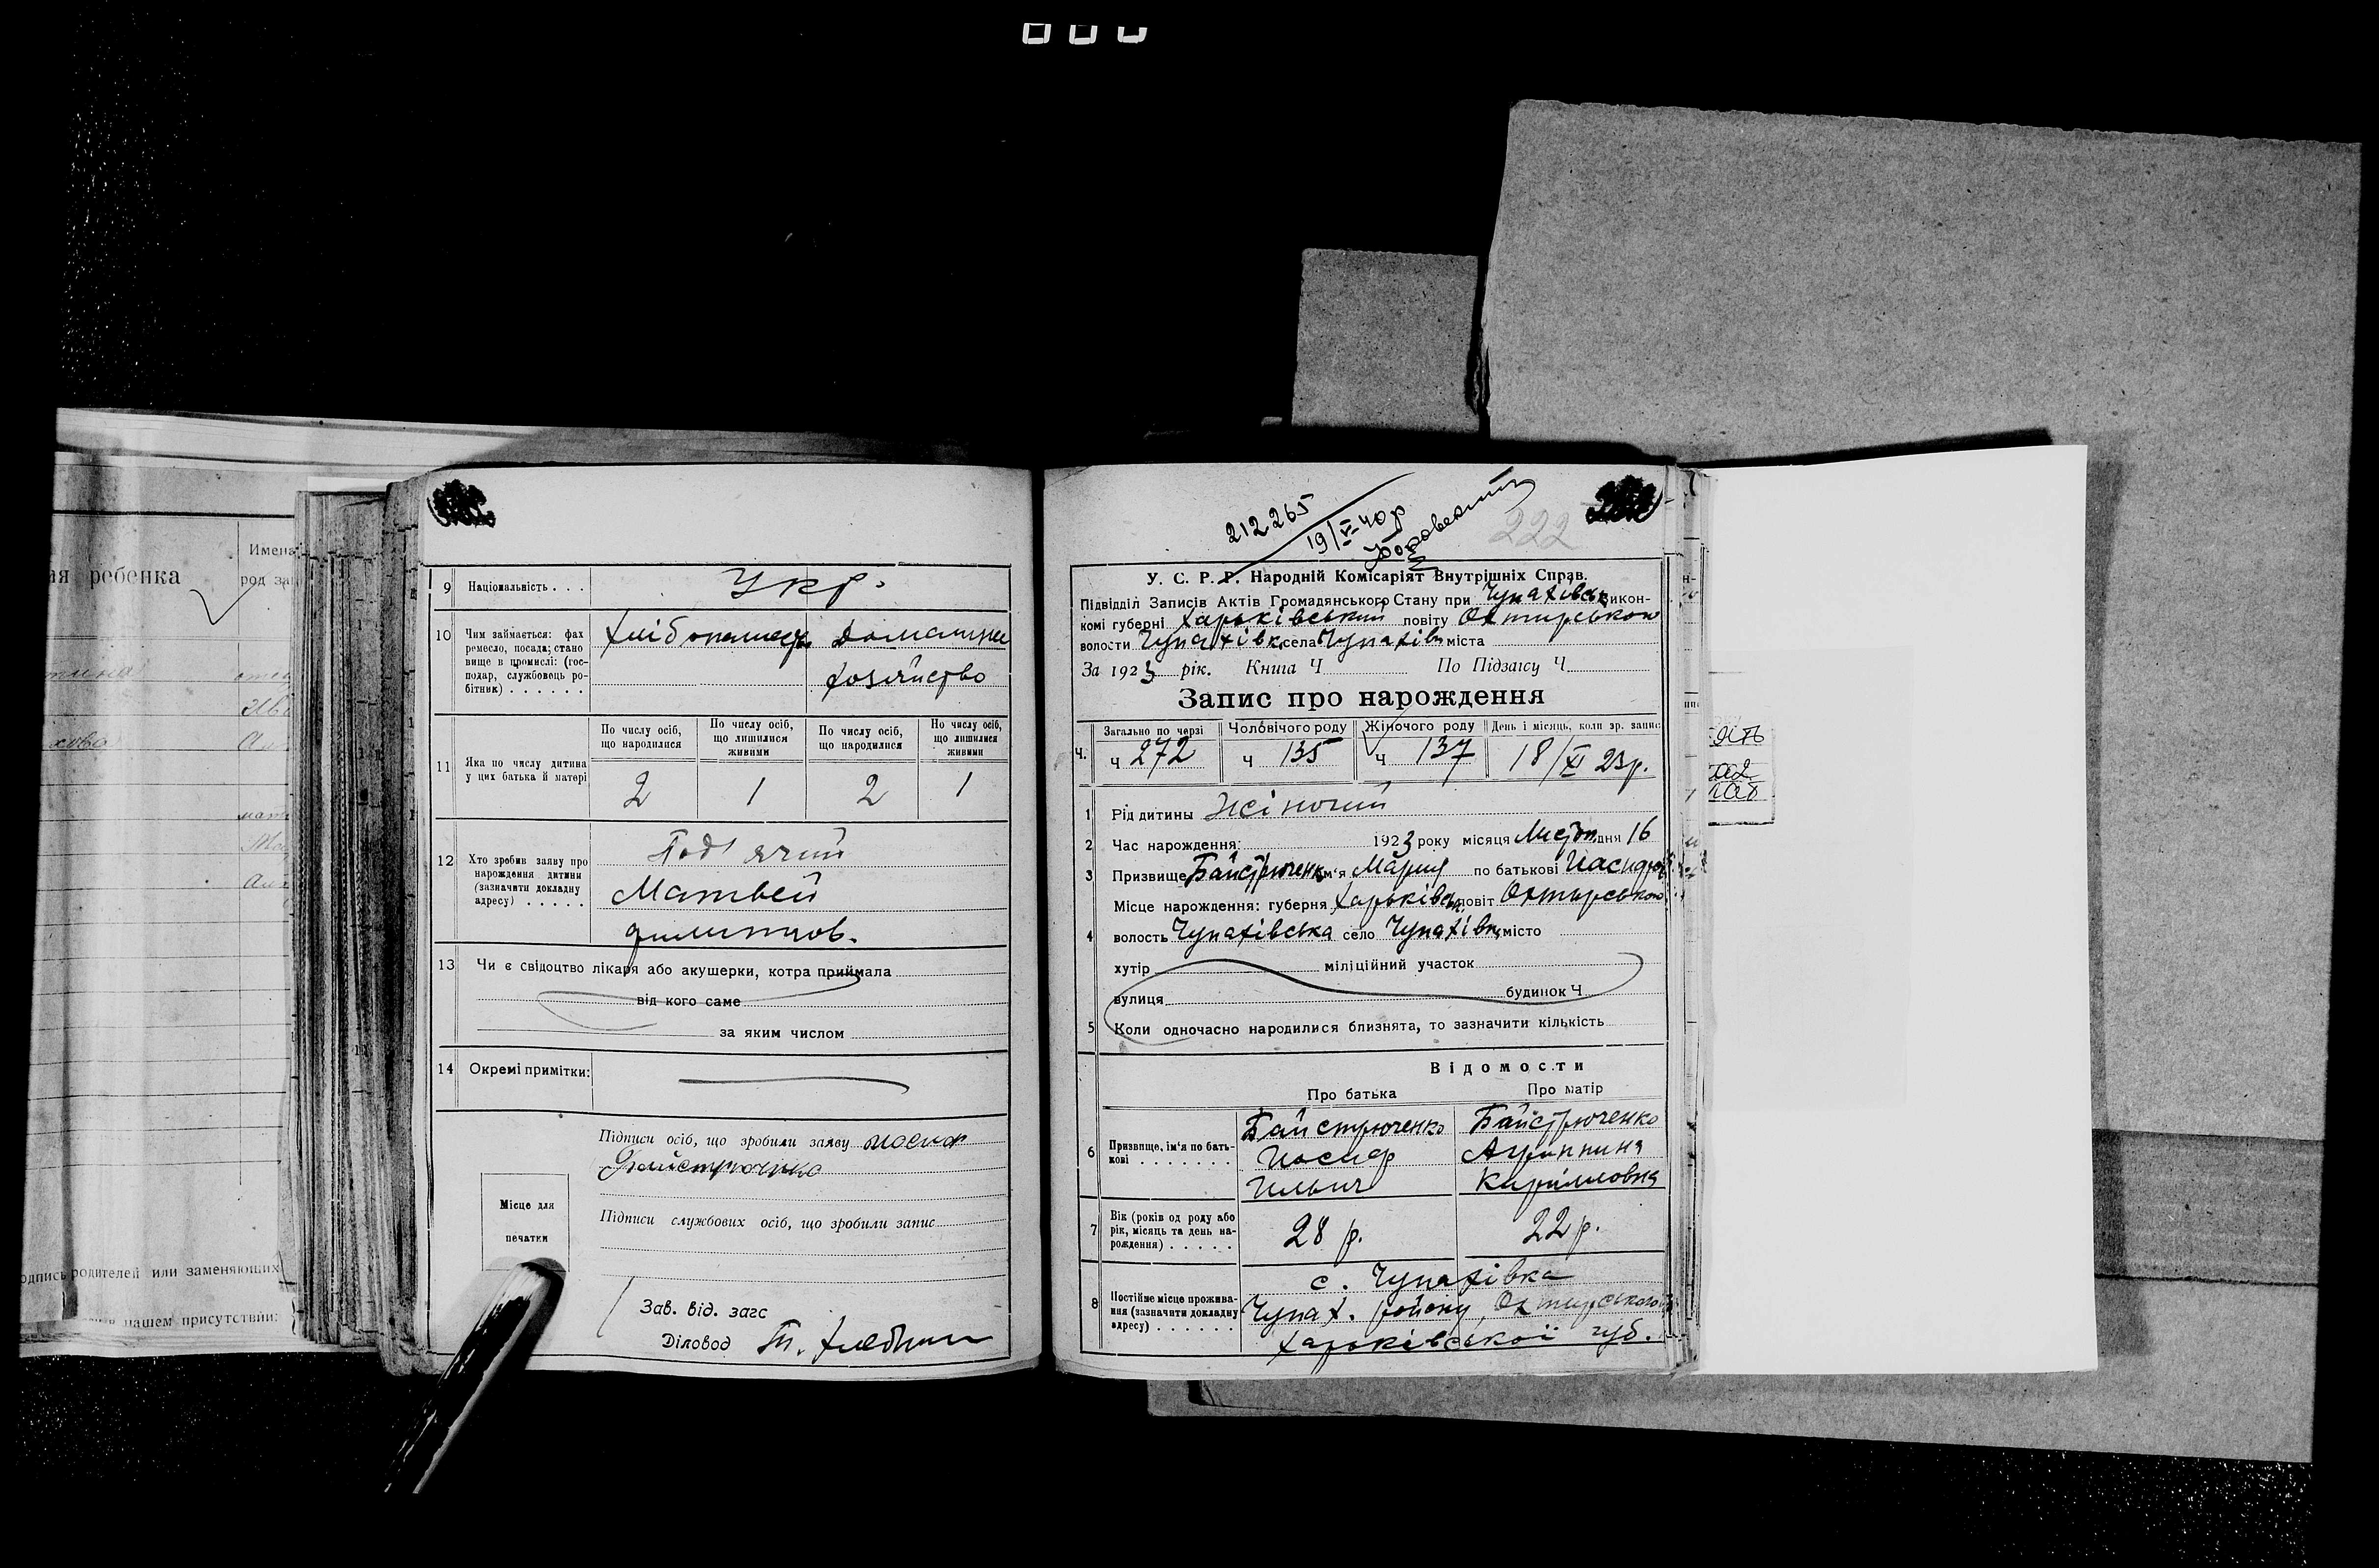 ая ребенка
Имена
род за
одпись родителей или заменяющих
нашем присутствии:
9 Національність . . . Укр.
10 Чим займається: фах ремесло, посада; становище в промислі: (господар, службовець робітник) . . . . . .
Хліборашець Домашнє
хозяйство
11 Яка по числу дитина у цих батька й матері
По числу осіб, що народилися
По числу осіб, що лишилися живими
По числу осіб, що народилися
По числу осіб, що лишилися живими
2 1 2 1
12 Хто зробив заяву про нарождення дитини (зазначити докладну адресу) . . . . .
Под'ячий
Матвей
Филипов.
13 Чи є свідоцтво лікаря або акушерки, котра приймала
від кого саме
за яким числом
14 Окремі примітки:
Підписи осіб, що зробили заяву Иосиф
Байстрюченко
Місце для
печатки
Підписи службових осіб, що зробили запис
Зав. від. загс
Діловод
212265
19/V 40р
222
У. С. Р. Р. Народній Комісаріят Внутрішніх Справ.
Підвідділ Записів Актів Громадянського Стану при Чупахівськ викон-
комі губерні Харьківський повіту Охтирською
волости Чупахівк села Чупахівк міста
За 1923 рік. Книга Ч По Підзагсу Ч
Запис про нарождення
Ч. Загально по черзі Чоловічого роду Жіночого роду День і місяць, коли зр. запис
ч 272 ч 135 ч 137 18/XI 23р.
1 Рід дитины Жіночий
2 Час нарождення: 1923 року місяця Листоп. дня 16
3 Призвище Байстрюченк ім'я Мария по батькові
Місце нарождення: губерня Харьківськ. повіт Охтирською
4 волость Чупахівська село Чупахівк місто
хутір міліційний участок
вулиця будинок Ч
5 Коли одночасно народилися близнята, то зазначити кількість
Відомости
Про батька Про матір
6 Призвище, ім'я по батькові . . . . . . .
Байстрюченко Байстрюченко
Иосиф Агриппина
Ильич Кирилловна
7 Вік (років од роду або рік, місяць та день нарождення) . . . . .
28 р. 22 р.
8 Постійне місце проживання (зазначити докладну адресу) . . . . . .
с. Чупахівка
Чупах. району, Охтирського
Харьківської губ.